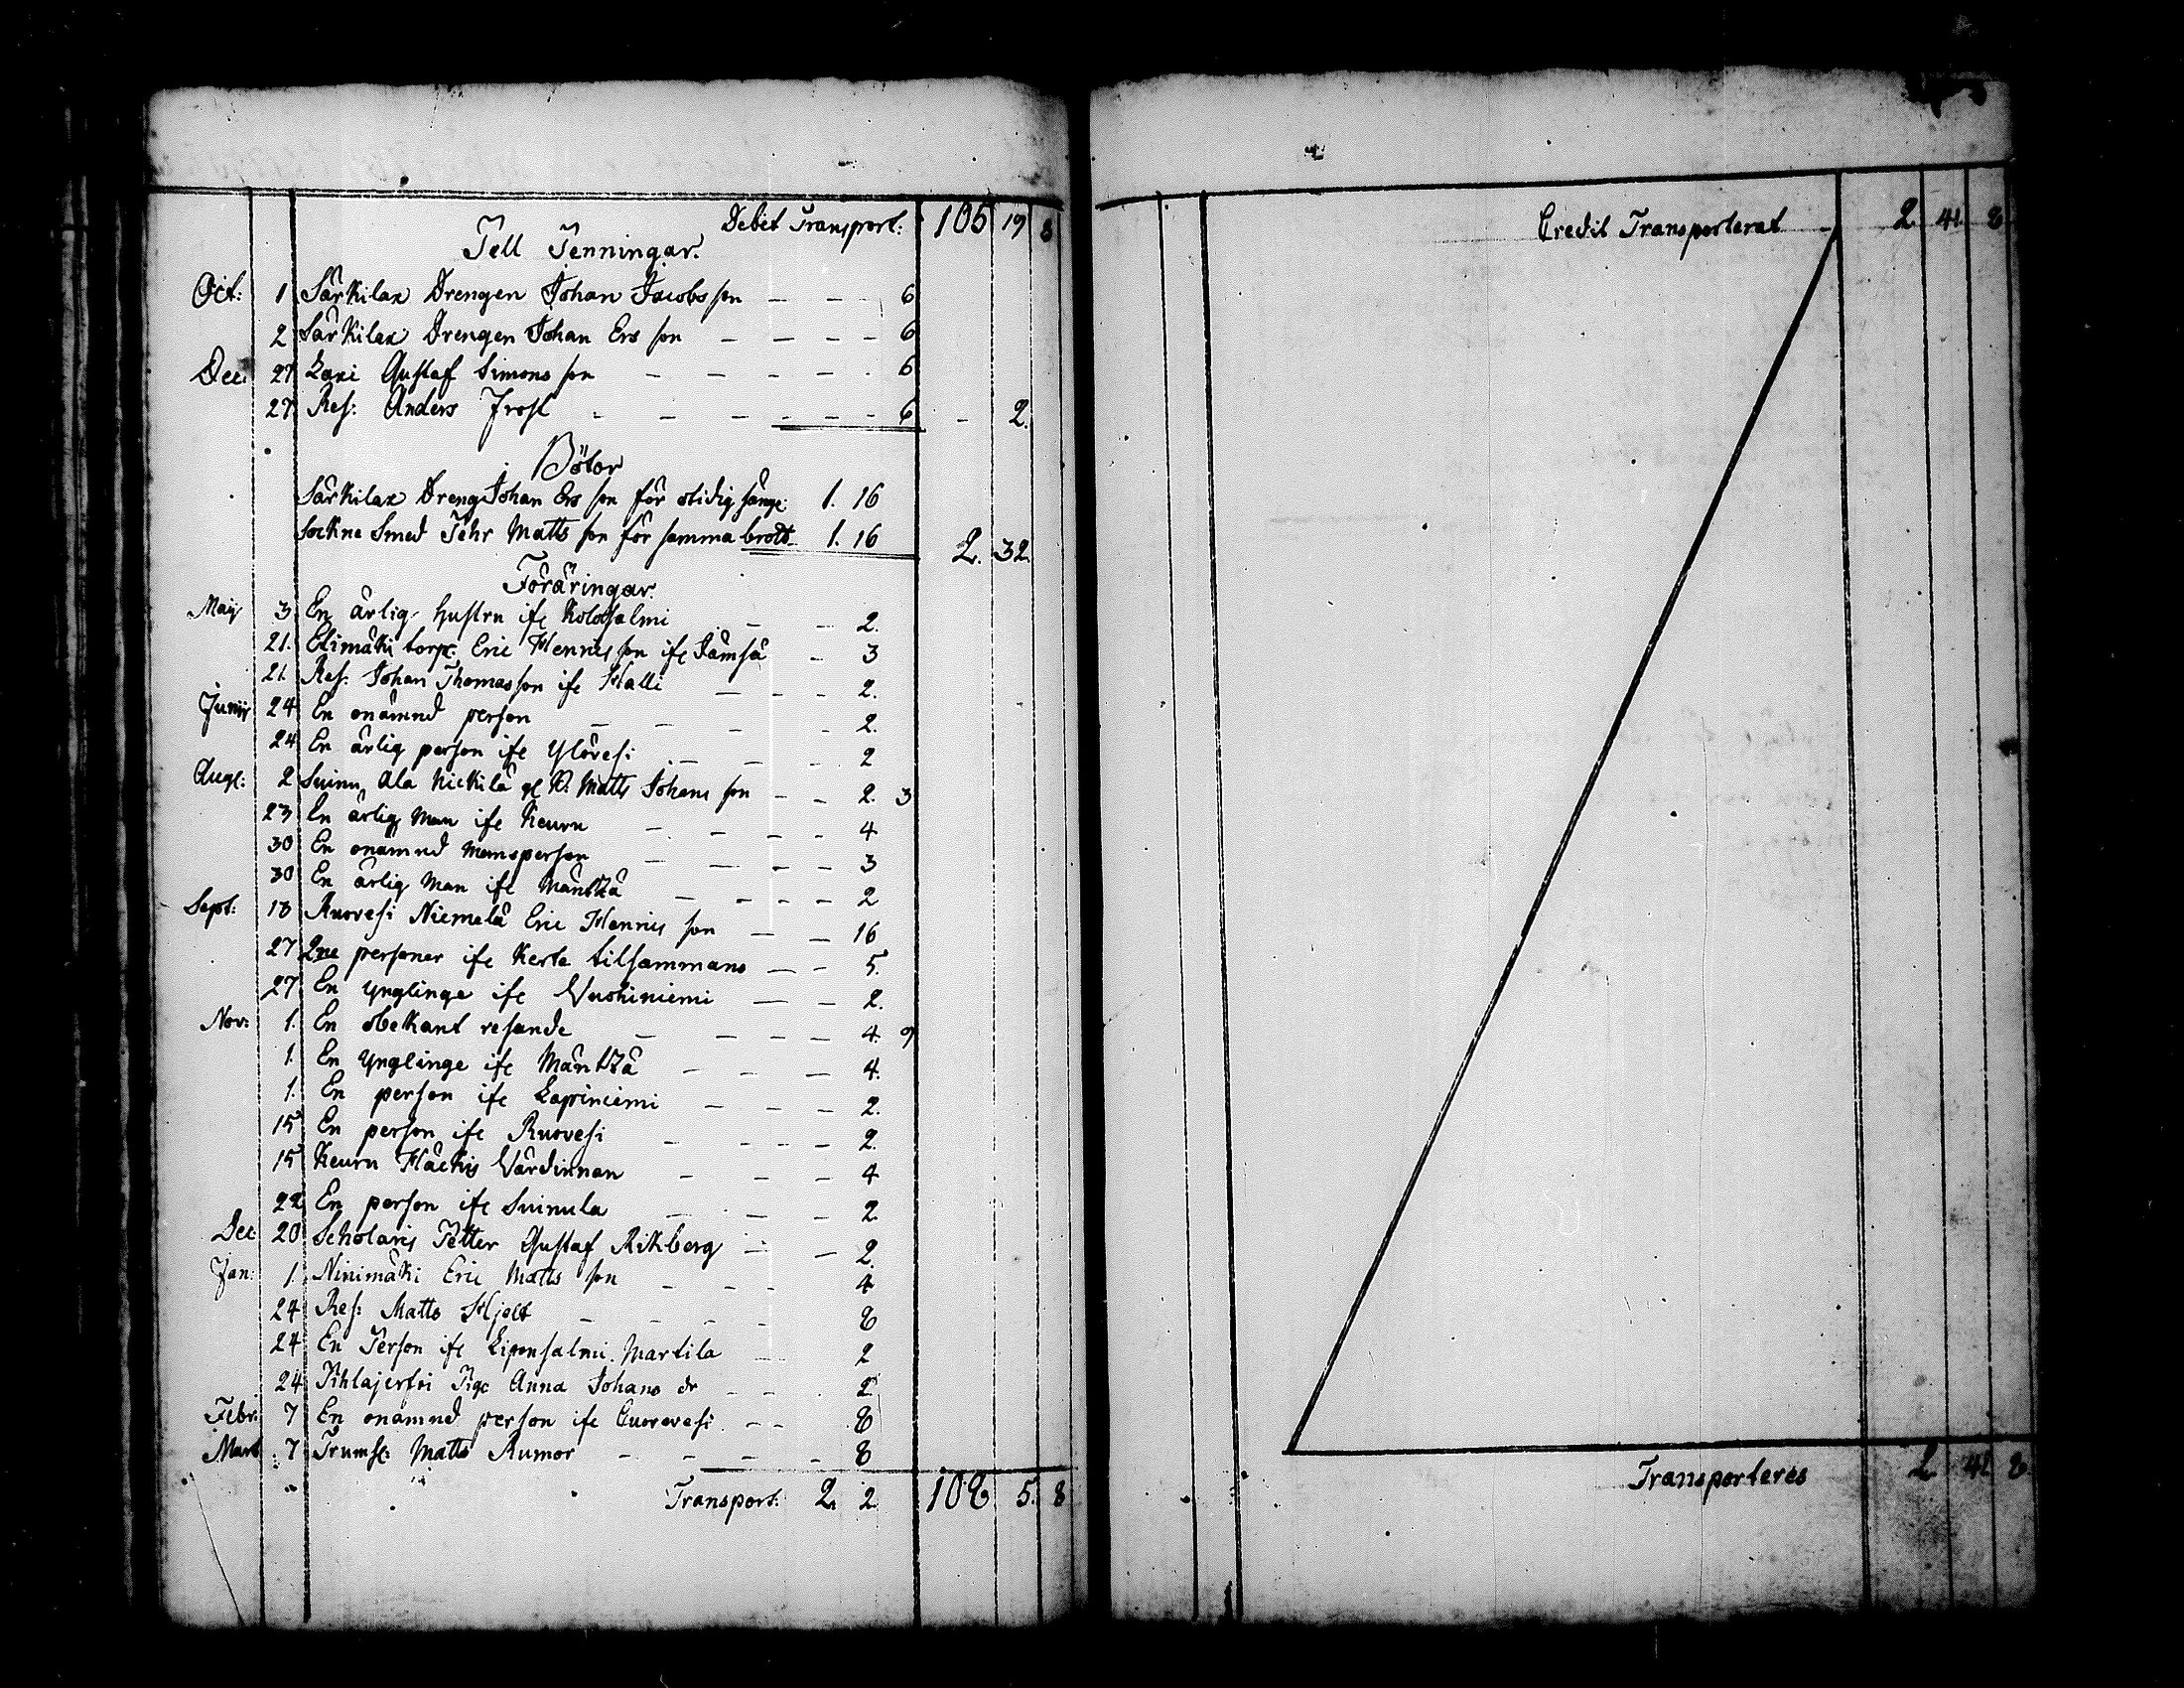 Debet Transport: 105 19 8
Pell Penningar.
Oct: 1 Särkilax Drengen Johan Jacobsson — — — 6
2 Särkilax Drengen Johan Ersson — — — — 6
Dec: 27 Lari Gustaf Simonsson — — — — — 6
27 Res: Anders Frost — — — — — — 6 — 2.
Böter
Särkilax Dreng Johan Ersson för otidig sänge: 1. 16
Sockne Smed Pehr Mattsson för samma brott 1. 16 2. 32.
Föräringar.
Maij 3. En ärlig hustru ifr. Kolosalmi — — 2.
21. Elimäki torp. Eric Henricsson ifr. Jämsä — 3
21. Res: Johan Thomasson ifr. Halli — — — 2.
Junij 24 En onämnd person — — — — 2.
24 En ärlig person ifr. Ylövesi — — — 2
Aug: 2 Suinu Ala Nickilä Matts Johansson — — 2. 3
23 En ärlig Man ifr. Keuru — — — — 4
30 En onämnd Mansperson — — — — 3
30 En ärlig Man ifr. Mänttä — — — — 2
Sept: 18 Ruovesi Niemelä Eric Henricsson — — 16
27 2ne personer ifr. Kerte tilsammans — — 5.
27. En Ynglinge ifr. Vuohiniemi — — 2.
Nov: 1. En obekant resande — — — — 4. 9
1. En Ynglinge ifr. Mänttä — — — 4.
1. En person ifr. Lapiniemi — — — 2.
15 En person ifr. Ruovesi — — — — 2.
15 Keuru Häckis Värdinnan — — — 4
22 En person ifr. Suinula — — — 2.
Dec 20 Scholaris Petter Gustaf Rikberg — — 2.
Jan: 1. Ninimäki Eric Mattsson — — — 4
24 Res: Matts Hjelt — — — — 8
24 En Person ifr. Liponsalmi Martila — 2
24 Pihlajerfvi Pig. Anna Johans dr — — . 2.
Febr: 7 En onämnd person ifr. Quorevesi — — 8
Mart 7 Trumsl: Matts Rumor — — — — 8
Transport: 2. 2 108 5. 8
Credit Transporterat — 2 41 8
Transporteres 2 41 8